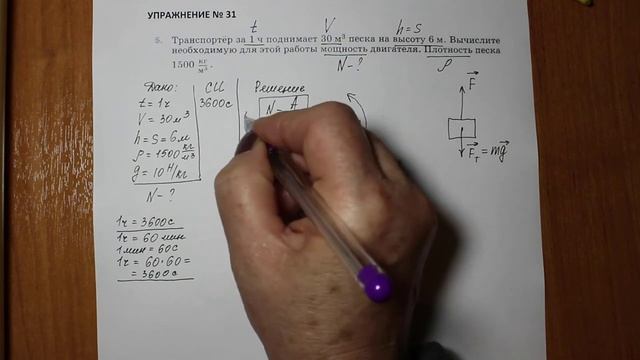 УПРАЖНЕНИЕ № 31
t V h = S
5. Транспортёр за 1 ч поднимает 30 м³ песка на высоту 6 м. Вычислите
необходимую для этой работы мощность двигателя. Плотность песка
1500 кг/м³.
N - ? ρ
Дано: СИ Решение
t = 1ч 3600с
V = 30м³
h = S = 6м
ρ = 1500 кг/м³
g = 10 Н/кг
N - ?
1ч = 3600с
1ч = 60 мин
1мин = 60с
1ч = 60·60 =
= 3600с
N = A
F
Fт = mg